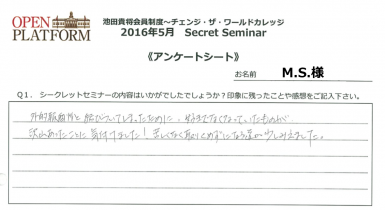 OPEN
PLATFORM
池田貴将会員制度～チェンジ・ザ・ワールドカレッジ
2016年5月 Secret Seminar
《アンケートシート》
お名前 M.S.様
Q1. シークレットセミナーの内容はいかがでしたでしょうか？印象に残ったことや感想をご記入下さい。
外的報酬と結びついてしまったために、好きでなくなっていたものが
沢山あったことに気付けました！苦しくなく取りくめずになる道が少しみえました。